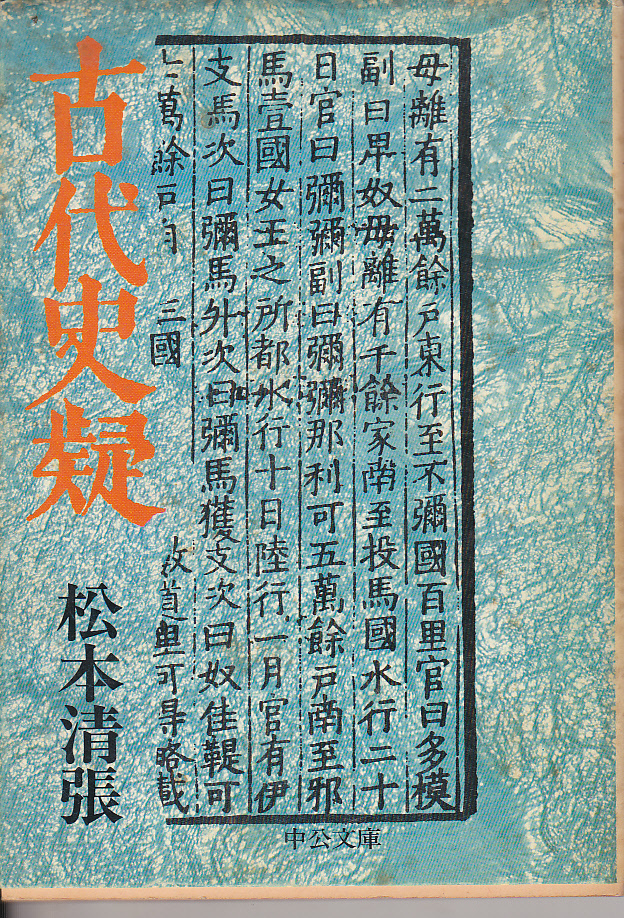 毋離有二萬餘戸東行至不彌國百里官曰多模
副曰卑奴毋離有千餘家南至投馬國水行二十
日官曰彌彌副曰彌彌那利可五萬餘戸南至邪
馬壹國女王之所都水行十日陸行一月官有伊
支馬次曰彌馬升次曰彌馬獲支次曰奴佳鞮可
萬餘戸自 三國 道里可得略載
古代史疑
松本清張
中公文庫